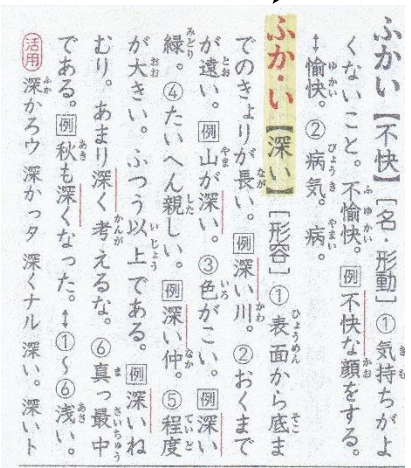 ふかい【不快】[名・形動]①気持ちがよ
くないこと。不愉快。例不快な顔をする。
↕愉快。②病気。病。
ふか・い【深い】[形容]①表面から底ま
でのきょりが長い。例深い川。②おくまで
が遠い。例山が深い。③色がこい。例深い
緑。④たいへん親しい。例深い仲。⑤程度
が大きい。ふつう以上である。例深いね
むり。あまり深く考えるな。⑥真っ最中
である。例秋も深くなった。↕①〜⑥浅い。
活用 深かろウ 深かっタ 深くナル 深い。深いト